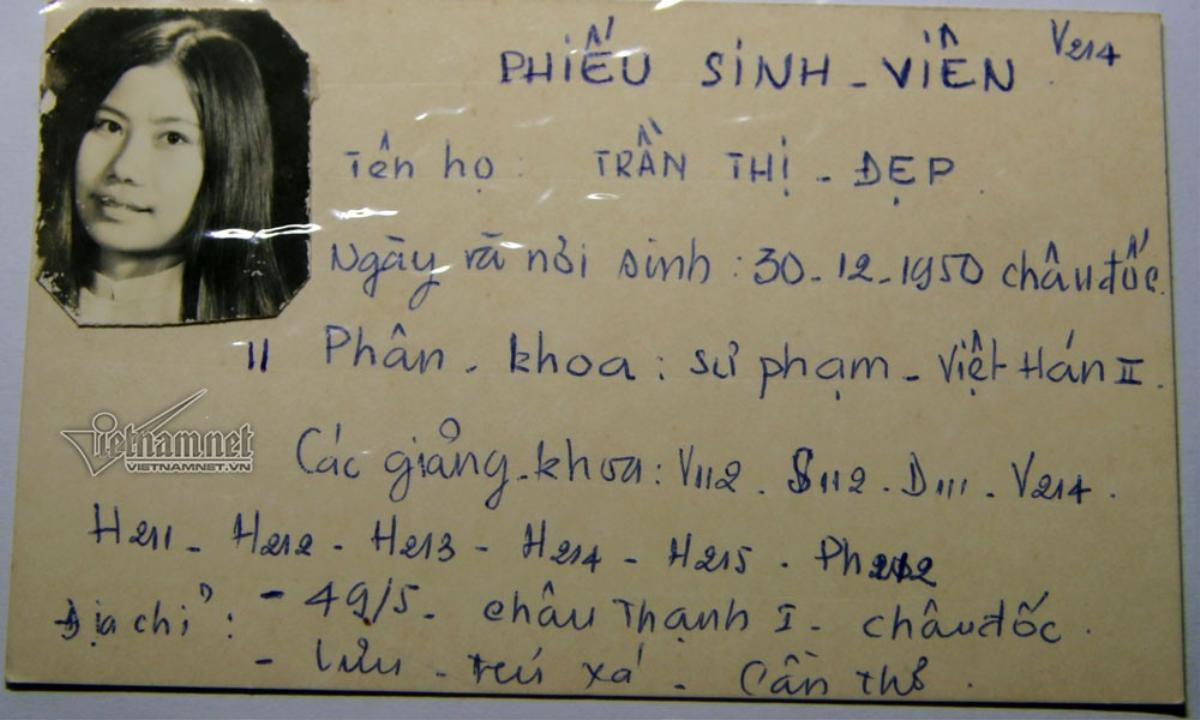 V214
PHIẾU SINH - VIÊN
Tên họ : TRẦN THỊ - ĐẸP .
Ngày và nơi sinh : 30 - 12 - 1950 châu đốc.
II Phân - khoa : sư phạm - Việt Hán II .
Các giảng - khoa : V112 . S112 . D111 . V214 .
H211 - H212 - H213 - H214 - H215 . Ph212
Địa chỉ : - 49/5 - châu Thạnh I - châu đốc .
- Lưu - trú xá - Cần Thơ .
Vietnamnet
VIETNAMNET.VN